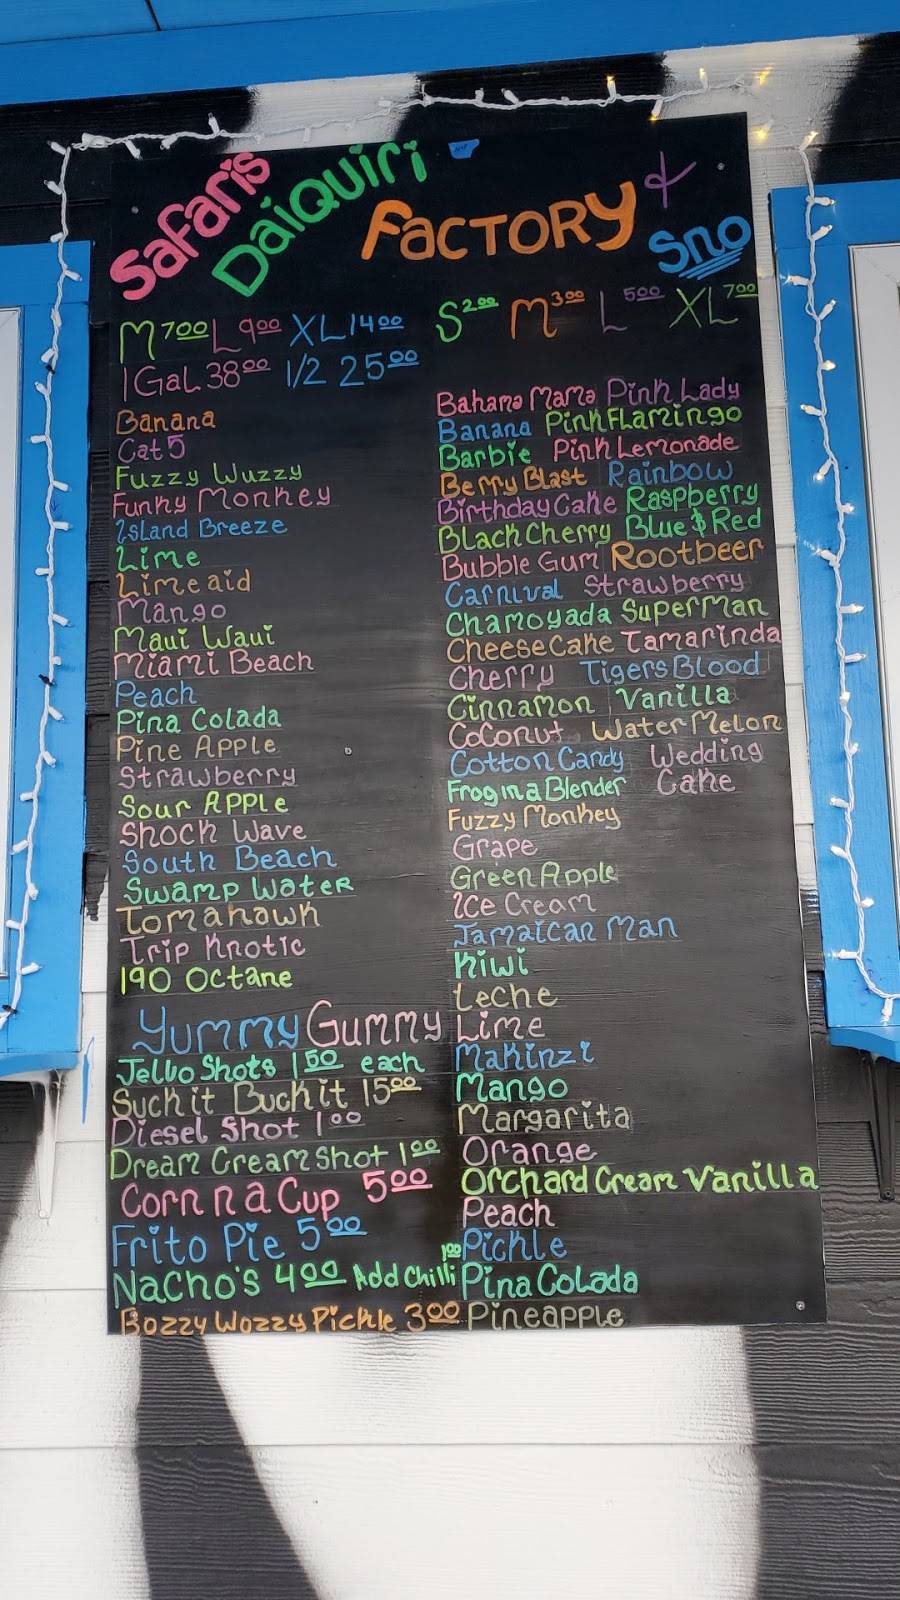 Safaris
Daiquiri
Factory &
Sno
M 7.00 L 9.00 XL 14.00
1 Gal 38.00 1/2 25.00
Banana
Cat 5
Fuzzy Wuzzy
Funky Monkey
Island Breeze
Lime
Limeaid
Mango
Maui Waui
Miami Beach
Peach
Pina Colada
Pine Apple
Strawberry
Sour Apple
Shock Wave
South Beach
Swamp Water
Tomahawk
Trip Knotic
190 Octane
Yummy Gummy
Jello Shots 1 50 each
Suckit Buckit 15 00
Diesel Shot 1 00
Dream Cream Shot 1 00
Corn n a Cup 5 00
Frito Pie 5 00
Nacho's 4 00 Add Chilli 1 00
Bozzy Wozzy Pickle 3 00
S 2.00 M 3.00 L 5.00 XL 7.00
Bahama Mama Pink Lady
Banana Pink Flamingo
Barbie Pink Lemonade
Berry Blast Rainbow
Birthday Cake Raspberry
Black Cherry Blue & Red
Bubble Gum Rootbeer
Carnival Strawberry
Chamoyada SuperMan
CheeseCake Tamarinda
Cherry Tigers Blood
Cinnamon Vanilla
Coconut WaterMelon
Cotton Candy Wedding
Frog in a Blender Cake
Fuzzy Monkey
Grape
Green Apple
Ice Cream
Jamaican Man
Kiwi
Leche
Lime
Makinzi
Mango
Margarita
Orange
Orchard Cream Vanilla
Peach
Pickle
Pina Colada
Pineapple